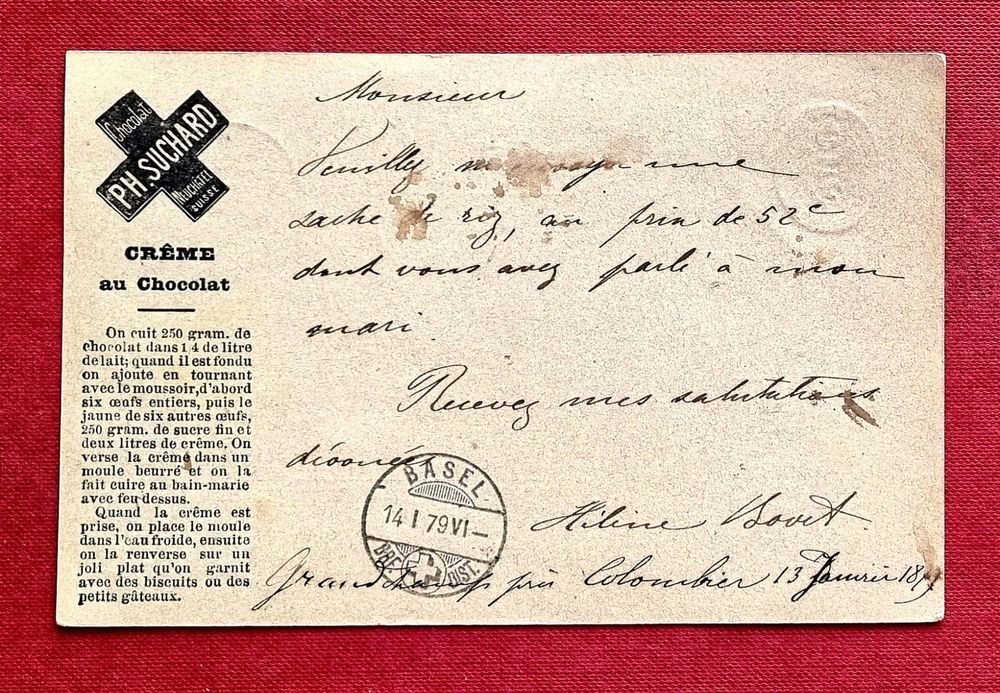 Chocolat
PH. SUCHARD
NEUCHÂTEL
SUISSE
CRÊME
au Chocolat
On cuit 250 gram. de
chocolat dans 1/4 de litre
de lait; quand il est fondu
on ajoute en tournant
avec le moussoir, d'abord
six œufs entiers, puis le
jaune de six autres œufs,
250 gram. de sucre fin et
deux litres de crême. On
verse la crême dans un
moule beurré et on la
fait cuire au bain-marie
avec feu dessus.
Quand la crême est
prise, on place le moule
dans l'eau froide, ensuite
on la renverse sur un
joli plat qu'on garnit
avec des biscuits ou des
petits gâteaux.
Monsieur
Veuillez une
sache de riz, au prix de 52c
dont vous avez parlé à mon
mari
Recevez mes salutations
Hélène Bovet
Grandchamp près Colombier 13 Janvier
BASEL
14 I 79 VI –
BRF. DIST.